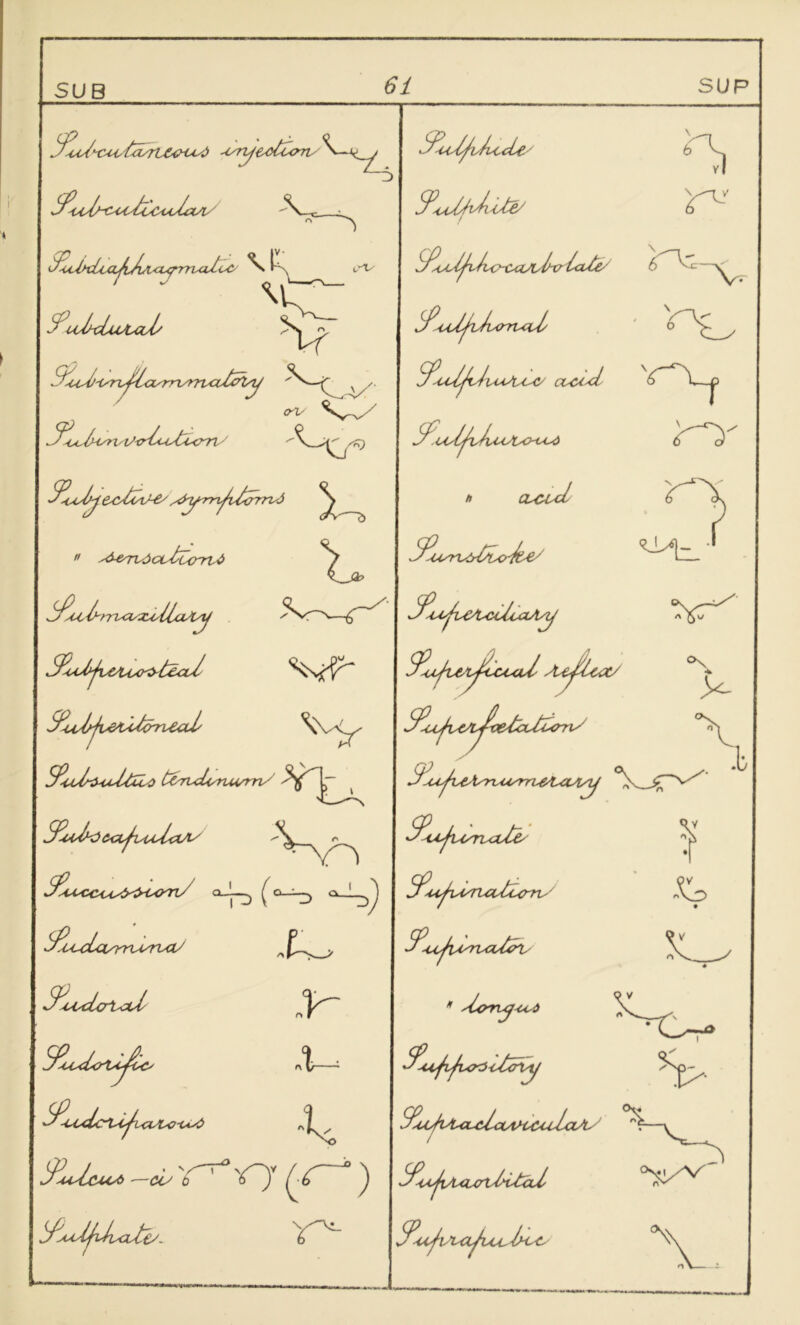 SUB 61 SUP
Subcutaneous injection
Subcuticular
Subdiaphragmatic or
Subdural
Subinflammatory or
Subinvolution
Subjective symptoms
" sensations
Submaxillary
Subperiosteal
Subperitoneal
Subsultus tendinum
Subscapular
Succussion
Sudamina
Sudoral
Sudorific
Sudoriparous
Sulcus —ci
Sulphate.
Sulphide
Sulphite
Sulphocarbolate
Sulphonal
Sulphuric acid
Sulphurous
" acid
Sunstroke
Superciliary
Superficial reflex
Superfoetation
Supernumerary
Supinate
Supination
Supinator
" longus
Suppository
Supraclavicular
Supraorbital
Suprapubic